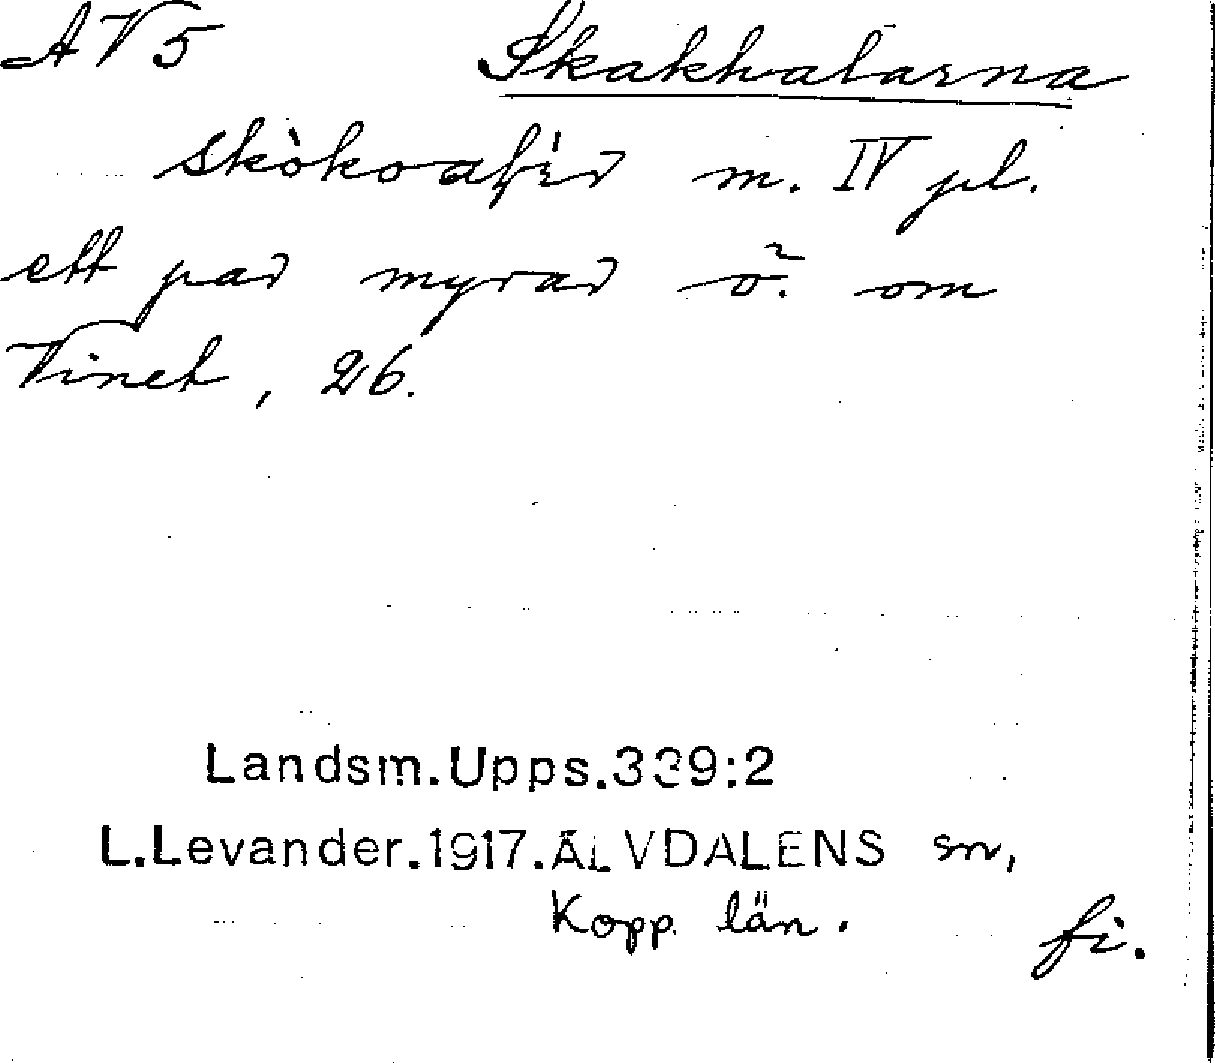 AV5 Skakhalarna
m. IV pl.
ett par myrar ö. om
Vinet, 26.
Landsm.Upps.339:2
L.Levander.1917.ÄLVDALENS sn,
Kopp. län.
fi.